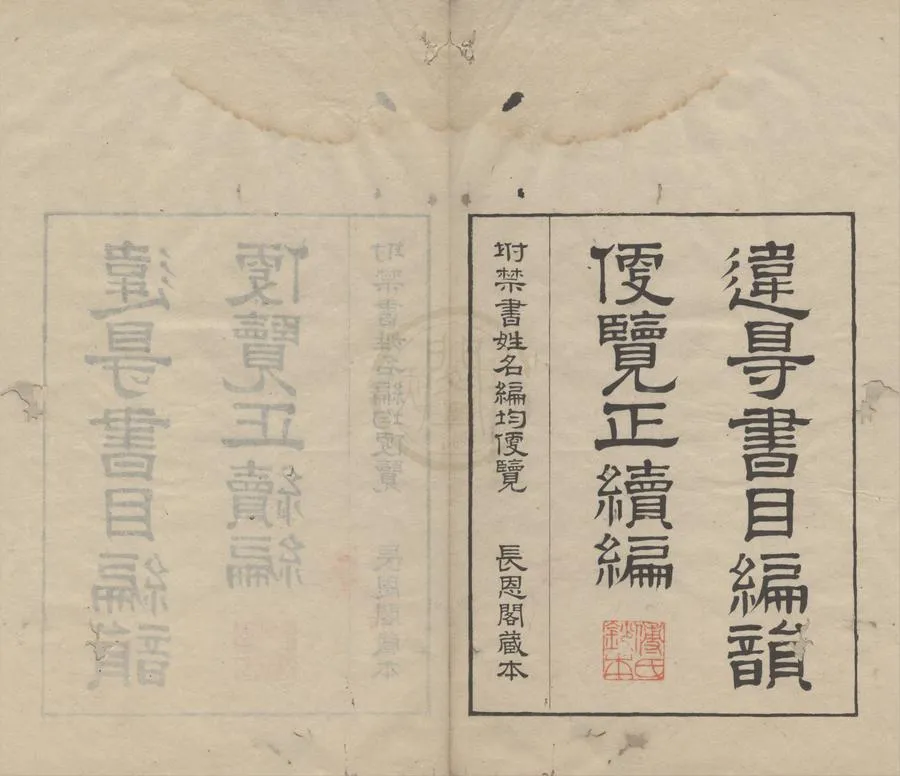 違㝵書目編韻
便覽正續編
坿禁書姓名編均便覽 長恩閣藏本
傅氏鈔本